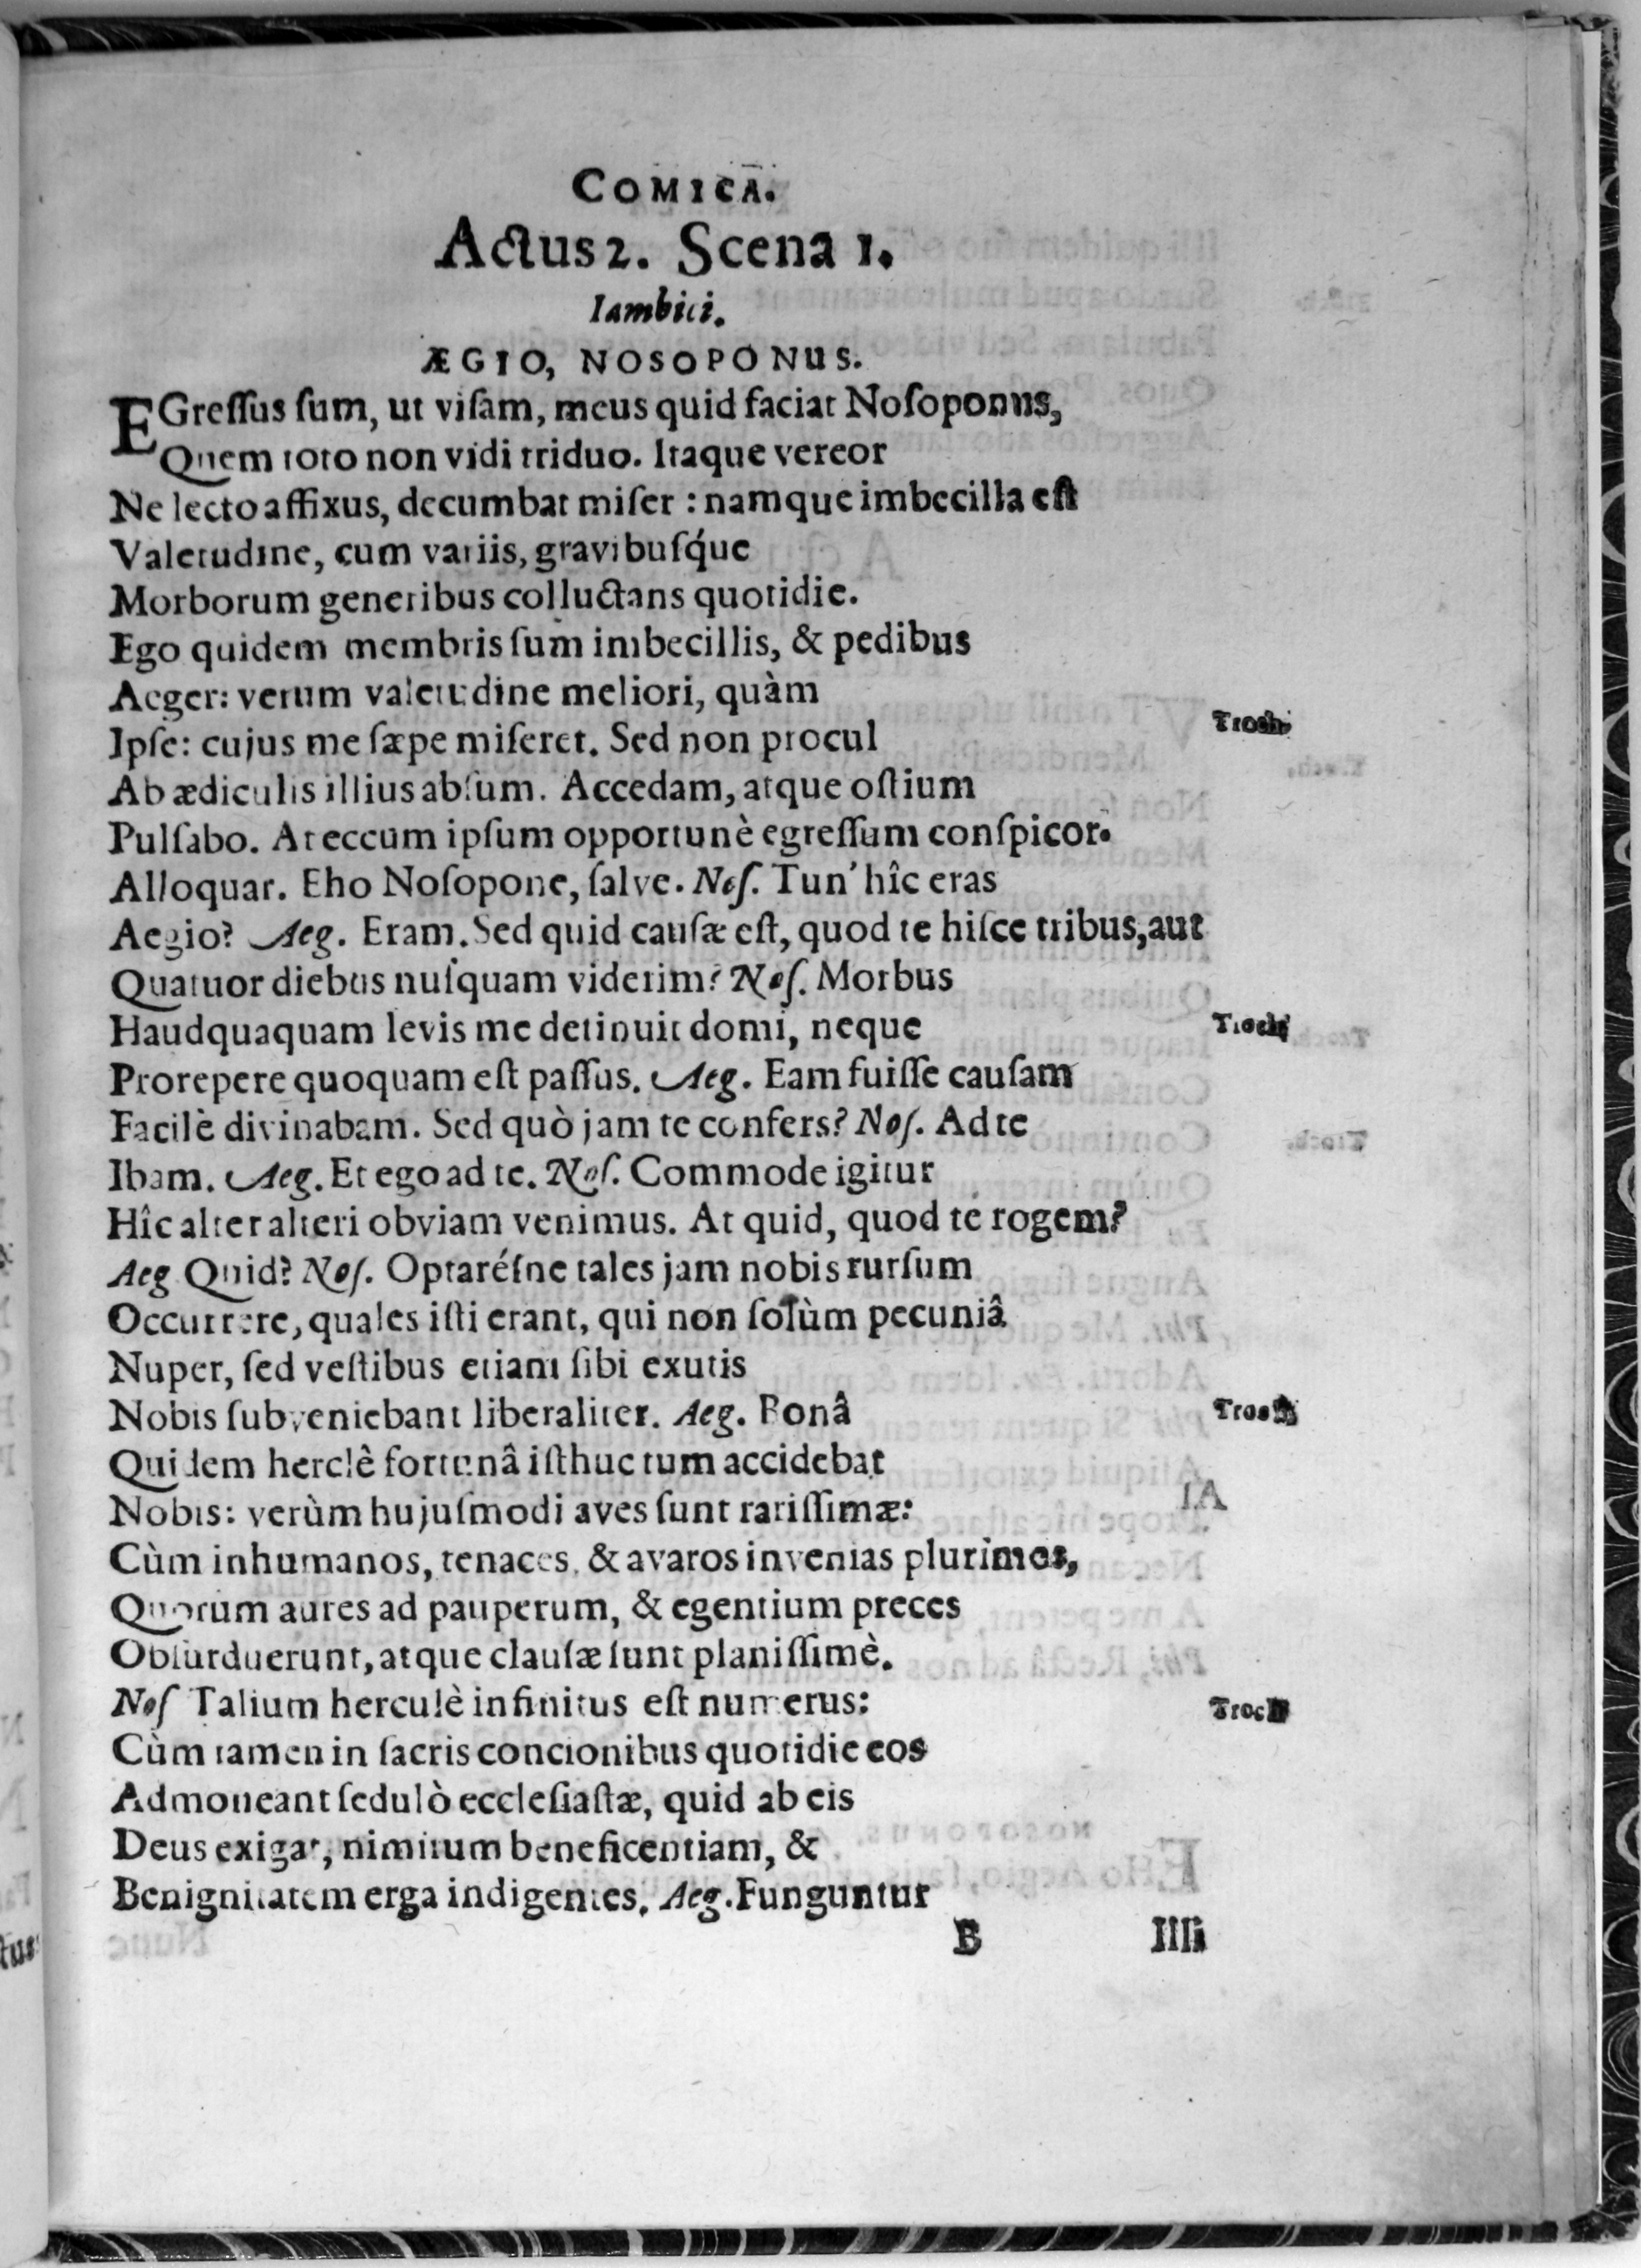 COMICA.
Actus 2. Scena 1.
Iambici.
ÆGIO, NOSOPONUS.
EGreſſus ſum, ut viſam, meus quid faciat Noſoponus,
Quem toto non vidi triduo. Itaque vereor
Ne lecto affixus, decumbat miſer : namque imbecilla eſt
Valetudine, cum variis, gravibuſq́ue
Morborum generibus colluctans quotidie.
Ego quidem membris ſum imbecillis, & pedibus
Aeger: verum valetudine meliori, quàm
Ipſe: cujus me ſæpe miſeret. Sed non procul Troch.
Ab ædiculis illius abſum. Accedam, atque oſtium
Pulſabo. At eccum ipſum opportunè egreſſum conſpicor.
Alloquar. Eho Noſopone, ſalve. Noſ. Tun' hîc eras
Aegio? Aeg. Eram. Sed quid cauſæ eſt, quod te hiſce tribus, aut
Quatuor diebus nuſquam viderim? Noſ. Morbus
Haudquaquam levis me detinuit domi, neque Troch
Prorepere quoquam eſt paſſus. Aeg. Eam fuiſſe cauſam
Facilè divinabam. Sed quò jam te confers? Noſ. Ad te
Ibam. Aeg. Et ego ad te. Noſ. Commode igitur
Hîc alter alteri obviam venimus. At quid, quod te rogem?
Aeg Quid? Noſ. Optaréſne tales jam nobis rurſum
Occurrere, quales iſti erant, qui non ſolùm pecuniâ
Nuper, ſed veſtibus etiam ſibi exutis
Nobis ſubveniebant liberaliter. Aeg. Bonâ Troch
Quidem herclè fortunâ iſthuc tum accidebat
Nobis: verùm hujuſmodi aves ſunt rariſſimæ:
Cùm inhumanos, tenaces, & avaros invenias plurimos,
Quorum aures ad pauperum, & egentium preces
Obſurduerunt, atque clauſæ ſunt planiſſimè.
Noſ Talium herculè infinitus eſt numerus: Troch
Cùm tamen in ſacris concionibus quotidie eos
Admoneant ſedulò eccleſiaſtæ, quid ab eis
Deus exigat, nimirum beneficentiam, &
Benignitatem erga indigentes. Aeg. Funguntur
B Illi